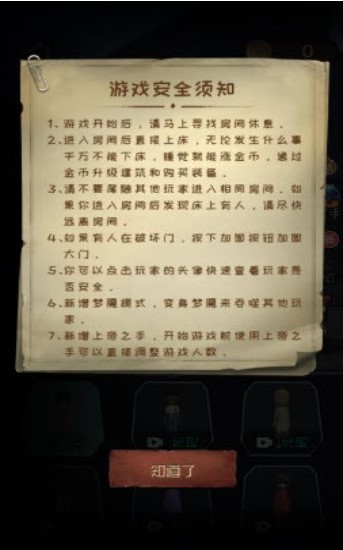 0
游戏安全须知
1、游戏开始后，请马上寻找房间休息．
2、进入房间后直接上床，无论发生什么事
千万不能下床，睡觉就能涨金币，通过
金币升级建筑和购买装备．
3、请不要尾随其他玩家进入相同房间．如
果你进入房间后发现床上有人，请尽快
逃离房间．
4、如果有人在破坏门，按下加固按钮加固
大门．
5、你可以点击玩家的头像快速查看玩家是
否安全．
6、新增梦魇模式，变身梦魇来吞噬其他玩
家．
7、新增上帝之手，开始游戏前使用上帝之
手可以直接调整游戏人数．
知道了